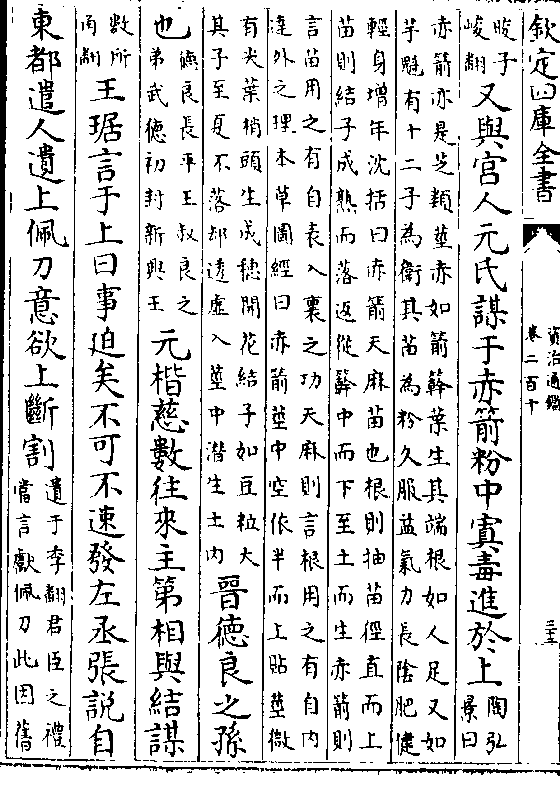 欽定四庫全書
資治通鑑
卷二百十
晙子
峻翻
又與宮人元氏謀于赤箭粉中寘毒進於上
陶弘
景曰
赤箭亦是芝類莖亦如箭簳葉生其端根如人足又如
芋魁有十二子為衛其苗為粉久服益氣力長陰肥健
輕身增年沈括曰赤箭天麻苗也根則抽苗徑直而上
苗則結子成熟而落返從簳中而下至土而生赤箭則
言苗用之有自表入裏之功天麻則言根用之有自內
達外之理本草圖經曰赤箭莖中空依半而上貼莖微
有尖葉梢頭生成穗開花結子如豆粒大
其子至夏不落却透虛入莖中潛生土內
晉德良之孫
也
德良長平王叔良之
弟武德初封新興王
元楷慈數往來主第相與結謀
數所
角翻
王琚言于上曰事迫矣不可不速發左丞張說自
東都遣人遺上佩刀意欲上斷割
遺于季翻君臣之禮
當言獻佩刀此因舊